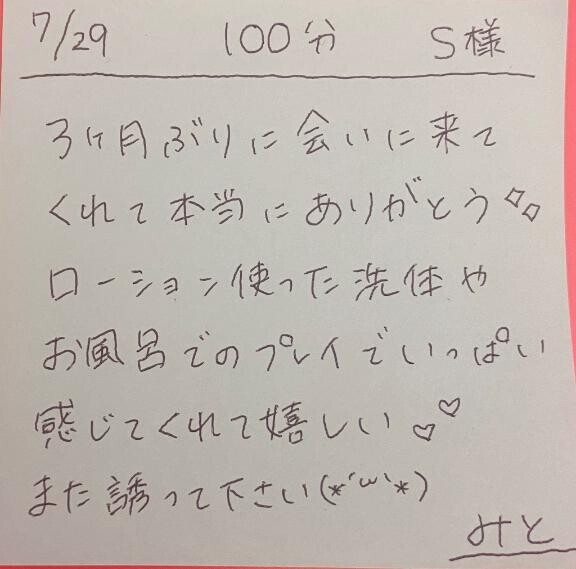 7/29 100分 S様
3ヶ月ぶりに会いに来て
くれて本当にありがとう
ローション使った洗体や
お風呂でのプレイでいっぱい
感じてくれて嬉しい♡♡
また誘って下さい(*´ω`*)
みと